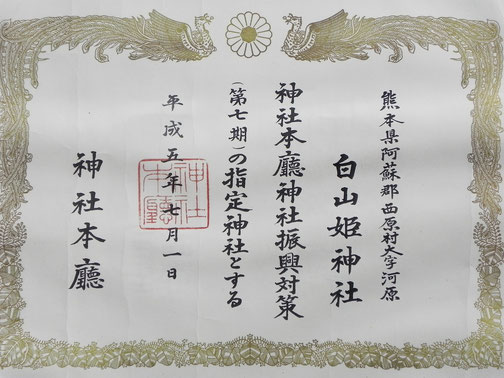 熊本県阿蘇郡西原村大字河原
白山姫神社
神社本廳神社振興対策
（第七期）の指定神社とする
平成五年七月一日
神社本廳
神社本廳